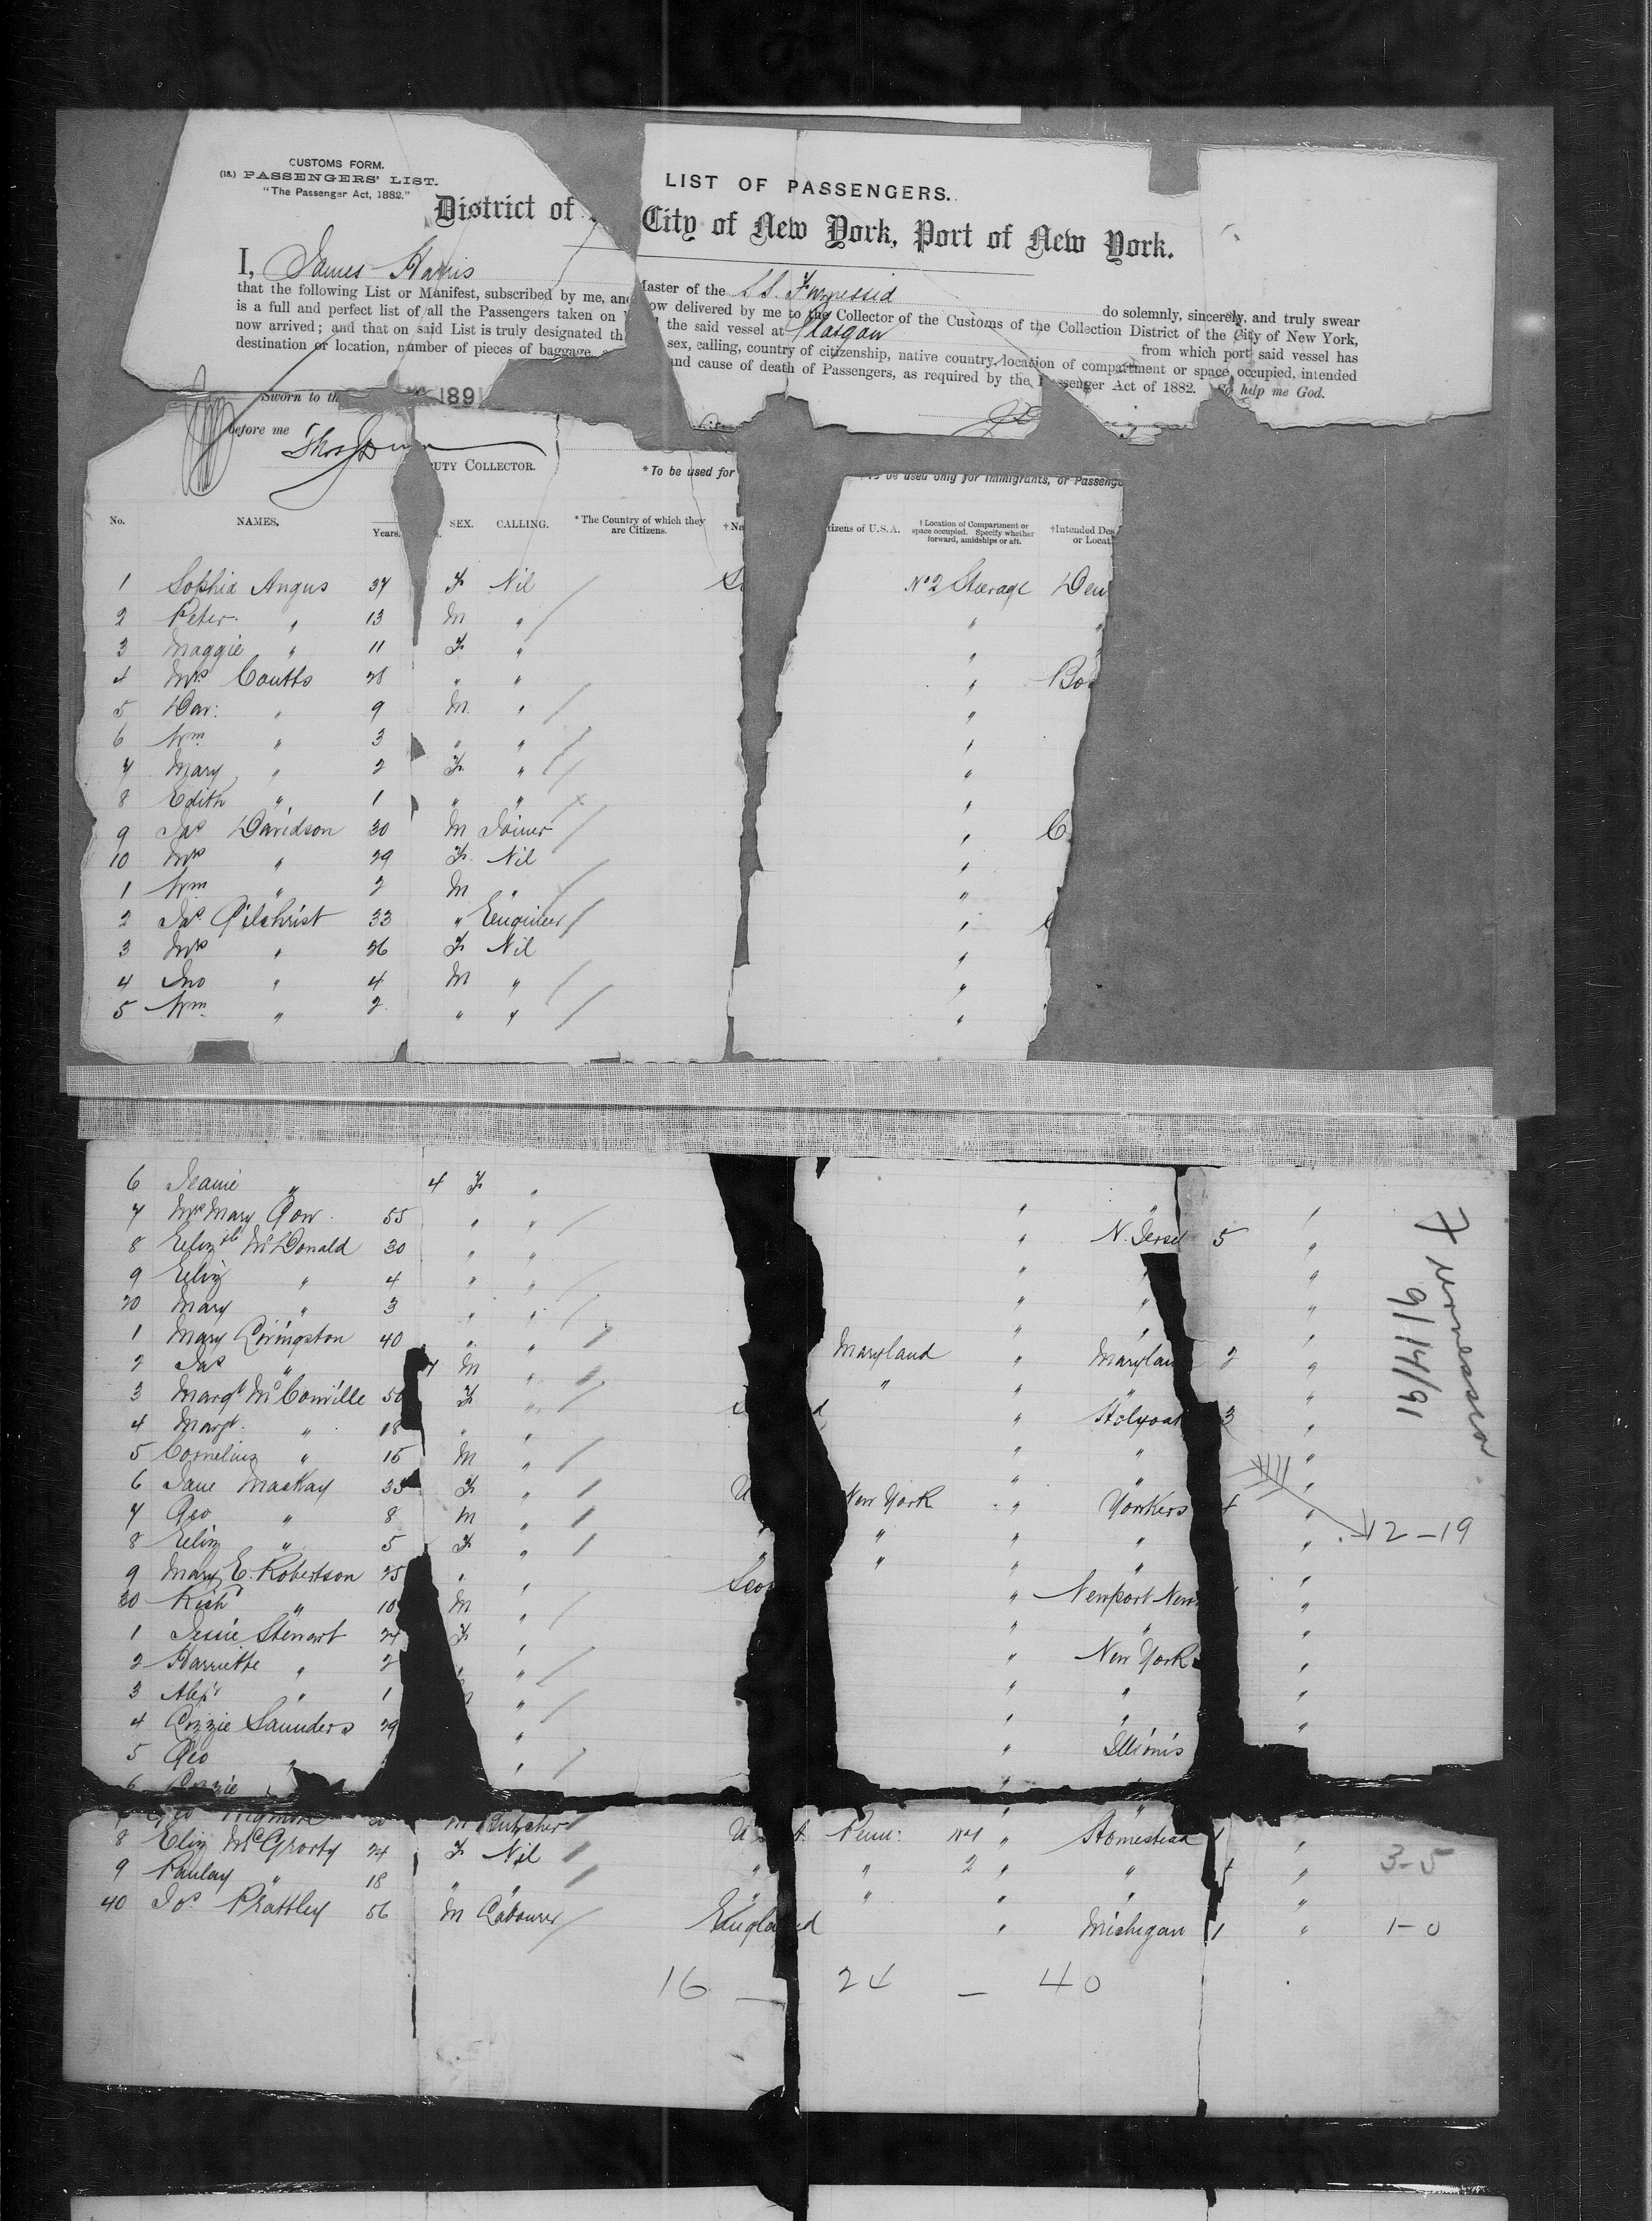 CUSTOMS FORM.
(18.) PASSENGERS' LIST.
"The Passenger Act, 1882."
LIST OF PASSENGERS.
District of City of New York, Port of New York.
I, James Harris Master of the S.S. Furnessia do solemnly, sincerely, and truly swear
that the following List or Manifest, subscribed by me, and now delivered by me to the Collector of the Customs of the Collection District of the City of New York,
is a full and perfect list of all the Passengers taken on the said vessel at Glasgow from which port said vessel has
now arrived; and that on said List is truly designated sex, calling, country of citizenship, native country, location of compartment or space occupied, intended
destination or location, number of pieces of baggage, and cause of death of Passengers, as required by the Passenger Act of 1882. So help me God.
Sworn to 1891
before me
COLLECTOR.
*To be used for be used only for Immigrants, or
No. NAMES. Years. SEX. CALLING. *The Country of which they are Citizens. of U.S.A. †Location of Compartment or space occupied. Specify whether forward, amidships or aft. †Intended
1 Sophia Angus 37 F Nil No 2 Steerage
2 Peter " 13 M " "
3 Maggie " 11 F " "
4 Mrs Coutts 28 " " "
5 Dav: " 9 M " "
6 Wm " 3 " " "
7 Mary " 2 F " "
8 Edith " 1 " " "
9 Jas Davidson 30 M Joiner "
10 Mrs " 29 F Nil "
1 Wm " 2 M " "
2 Jas Gilchrist 33 " Engineer "
3 Mrs " 26 F Nil "
4 Jno " 4 M " "
5 Wm " 2 " " "
6 Jeanie " 4 F " " " "
7 Mrs Mary Gow 55 " " " N. Jerse 5 "
8 Elizth McDonald 30 " " " " "
9 Eliz " 4 " " " " "
20 Mary " 3 " " " " "
1 Mary Livingston 40 " " Maryland " Maryland 2 "
2 Jas " 7 M " " " " "
3 Margt McConville 50 F " " Holyoak 3 "
4 Margt " 18 " " " " "
5 Cornelius " 15 M " " " "
6 Jane MacKay 35 F " New York " Yonkers "
7 Geo " 8 M " " " " "
8 Eliz " 5 F " " " " "
9 Mary E. Robertson 25 " " " Newport New "
30 Richd " 10 M " " " "
1 Jessie Stewart 24 F " " New York "
2 Harriette " 2 " " " "
3 Alexr " 1 " " " "
4 Lizzie Saunders 29 " " Illionis
5 Geo " "
6 Lizzie
Butcher Penn: No 1 " Homestead 1 "
8 Eliz McGrorty 24 F Nil " " 2 " " "
9 18 " " " " " " "
40 Jos Prattley 56 M Labourer England " Michigan 1 "
16 — 24 — 40
Furnessia
9/14/91
12-19
3-5
1-0